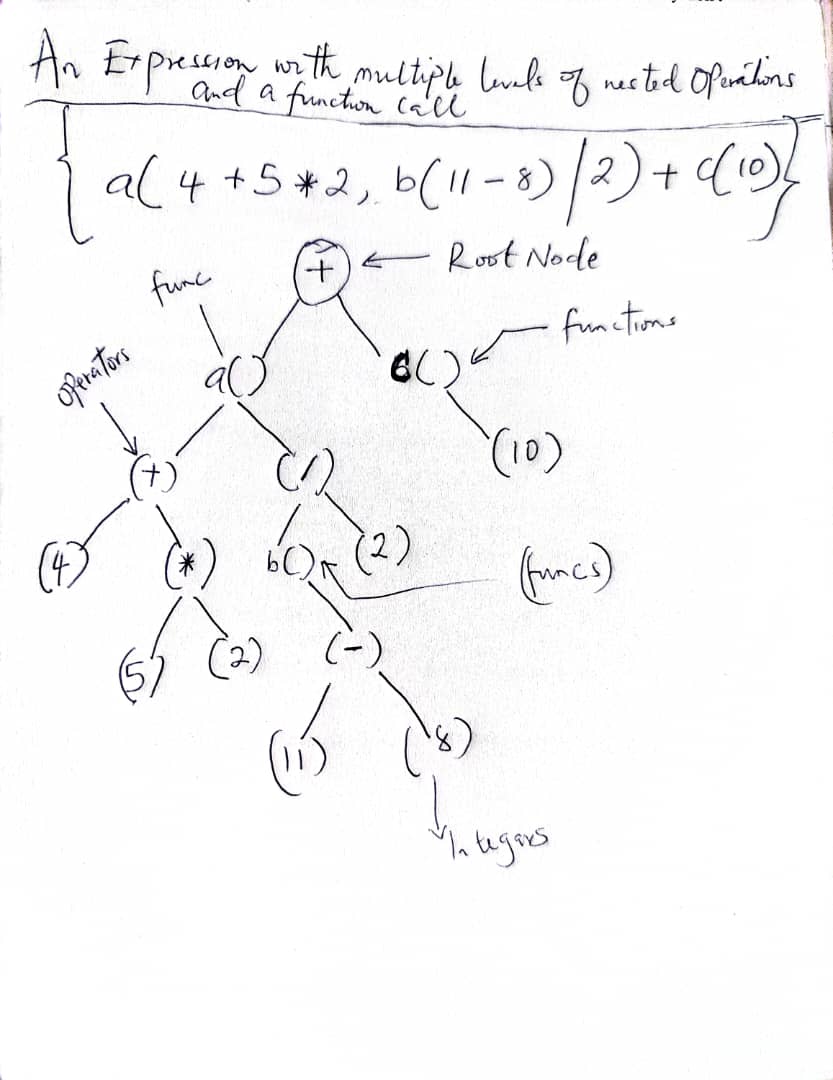 An Expression with multiple levels of nested Operations
and a function call
{ a( 4 + 5 * 2, b( 11 - 8) / 2) + c(10) }
+ ← Root Node
func
functions
operators
a() c()
(+) (/) (10)
(4) (*) b() (2) (funcs)
(5) (2) (-)
(11) (8)
Integers